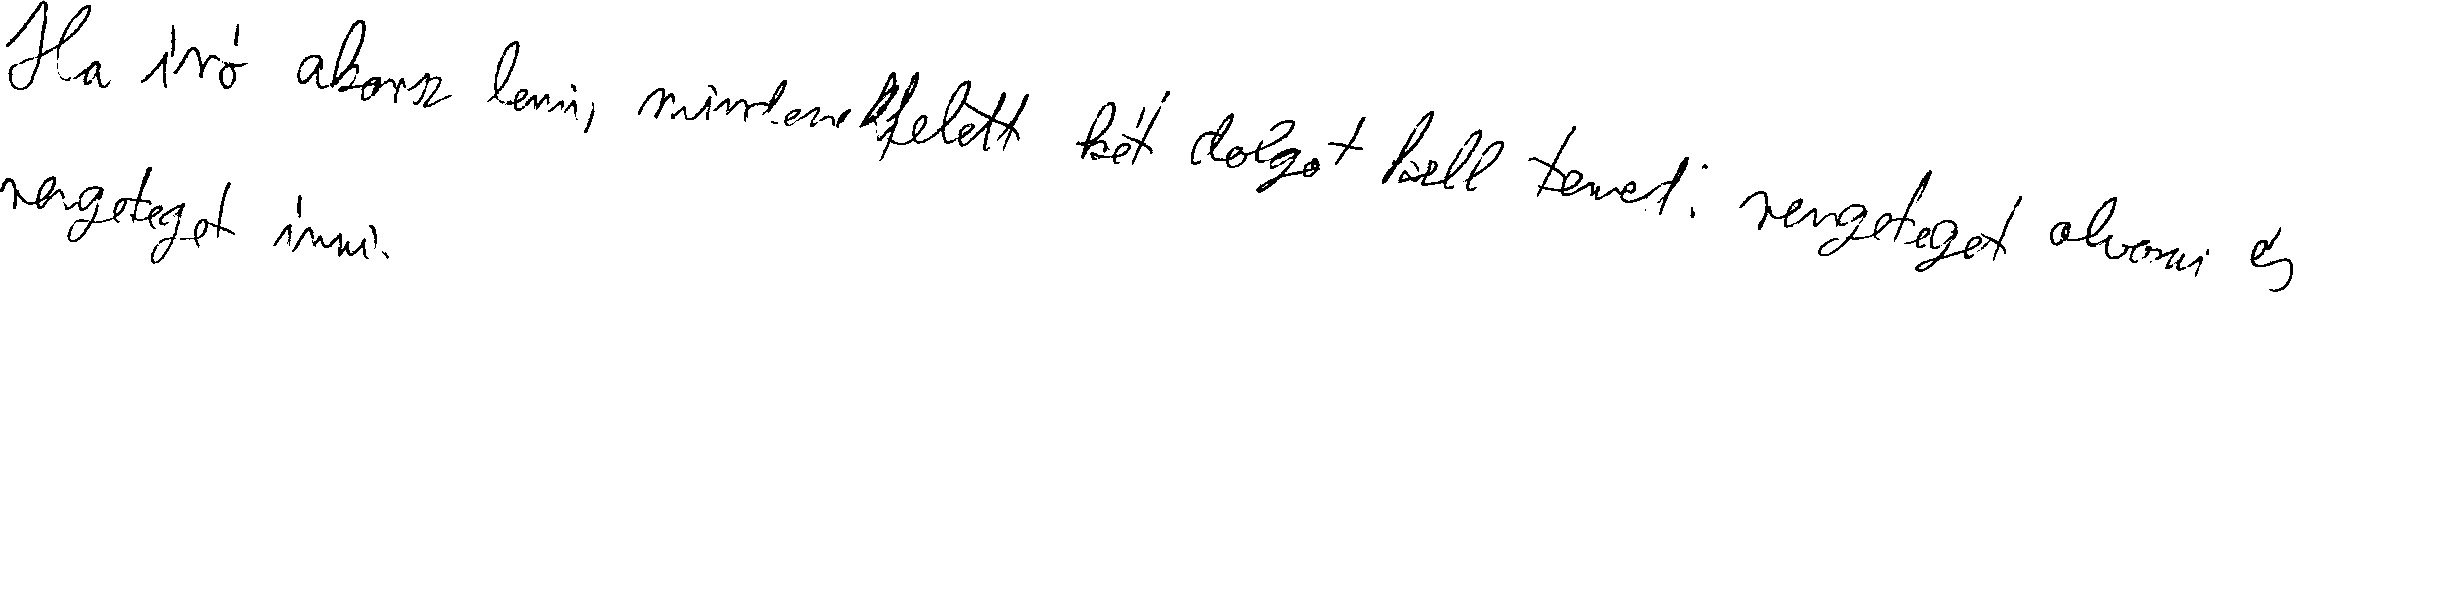 Ha író akarsz lenni, mindenekfelett két dolgot kell tenned: rengeteget olvasni és
rengeteget írni.